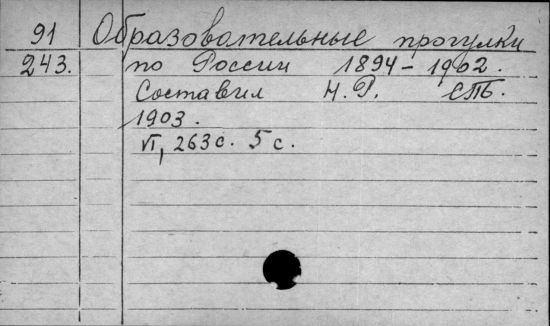 91 Образовательные прогулки
243. по России 1894-1902.
Составил Н.Р. СПБ.
1903.
VI, 263 с. 5 с.